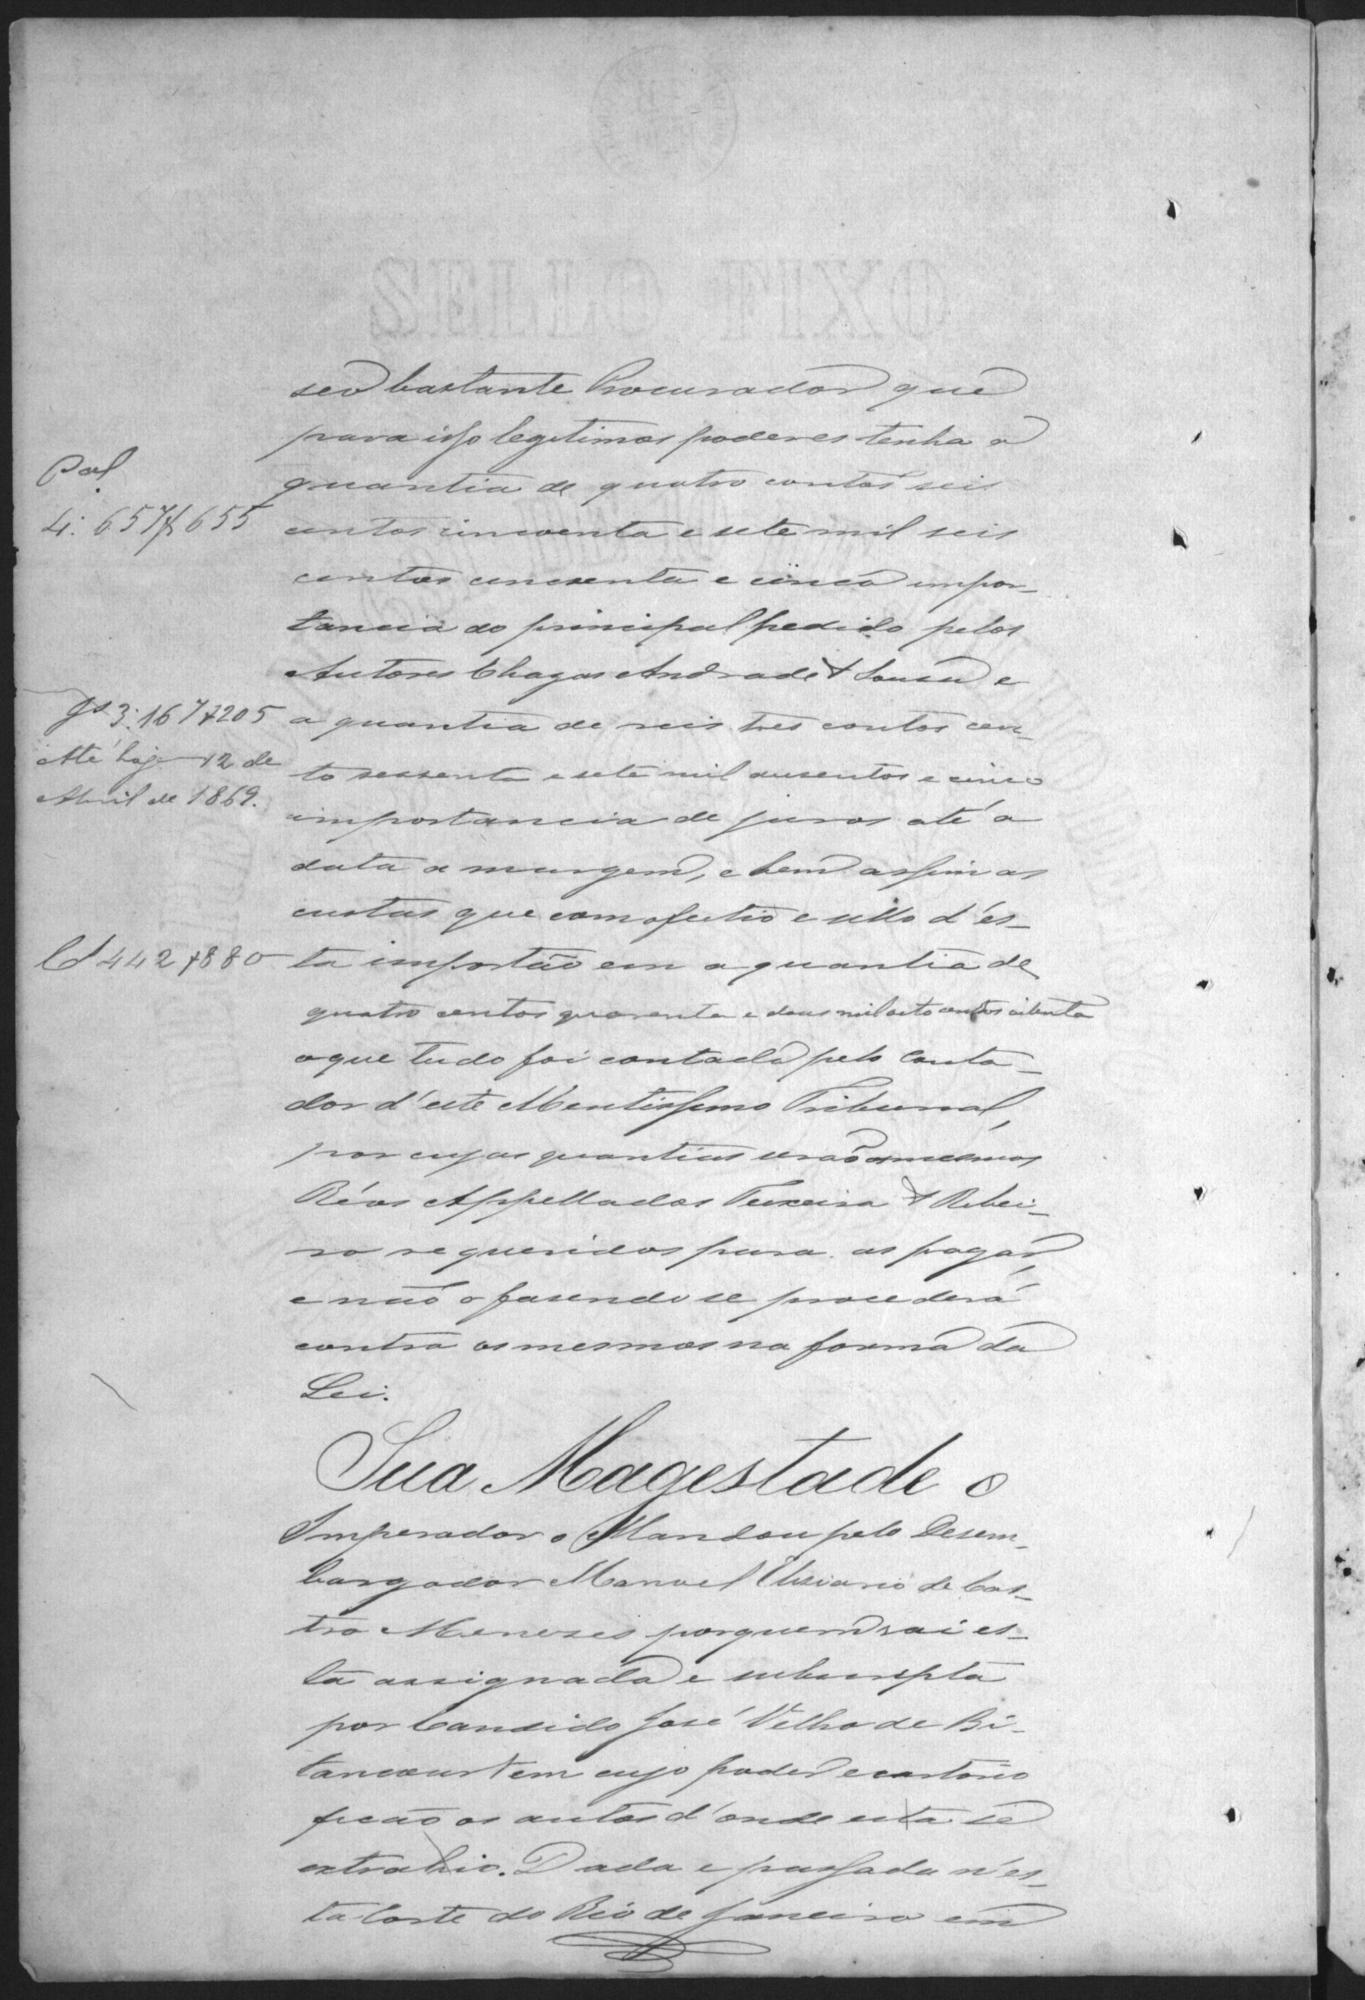 SELLO FIXO
seo bastante Procurador que
para isso legitimos poderes tenha a
Pal
quantia de quatro contos seis
4:657$655
centos cincoenta e sete mil seis
centos cincoenta e cinco impor-
tancia do principal pedido pelos
Autores Chagas Andrade & Sousa e
Js 3:167$205
a quantia de reis tres contos cen-
Até hoje 12 de
to sessenta e sete mil dusentos e cinco
Abril de 1869.
importancia de juros até a
data a margem, e bem assim as
custas que com o feitio e sello d'es-
Cs 442$880
ta importão em a quantia de
quatro centos quarenta e dous mil oito centos oitenta
o que tudo foi contado pelo Conta-
dor d'este Meritissimo Tribunal,
por cujas quantias serão os mesmos
Réos Appellados Teixeira & Ribei-
ro requeridos para as pagar,
e não o fasendo se procederá
contra os mesmos na forma da
Lei.
Sua Magestade o
Imperador o Mandou pelo Desem-
bargador Manoel Elisiario de Cas-
tro Meneses por quem vai es-
ta assignada e subscripta
por Candido José Velho de Bi-
tancourt em cujo poder e cartorio
ficão os autos d'onde esta se
extrahio. Dada e passada n'es-
ta Corte do Rio de Janeiro em